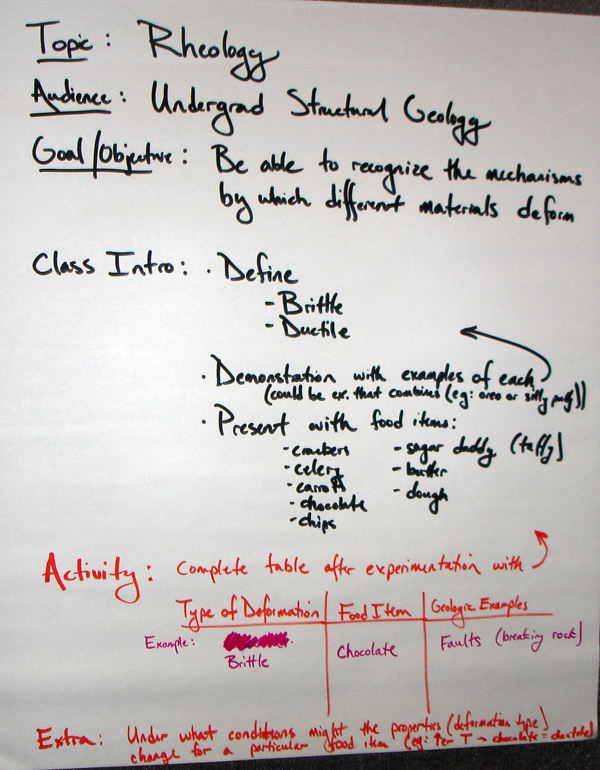 Topic: Rheology
Audience: Undergrad Structural Geology
Goal/Objective: Be able to recognize the mechanisms
by which different materials deform
Class Intro: · Define
- Brittle
- Ductile
· Demonstration with examples of each
(could be ex. that combines (eg: oreo or silly putty))
· Present with food items:
- crackers
- celery
- carrot
- chocolate
- chips
- sugar daddy (taffy)
- butter
- dough
Activity: Complete table after experimentation with
Type of Deformation | Food Item | Geologic Examples
Example: Brittle | Chocolate | Faults (breaking rock)
Extra: Under what conditions might the properties (deformation type)
change for a particular food item (eg: ↑er T → chocolate = ductile)